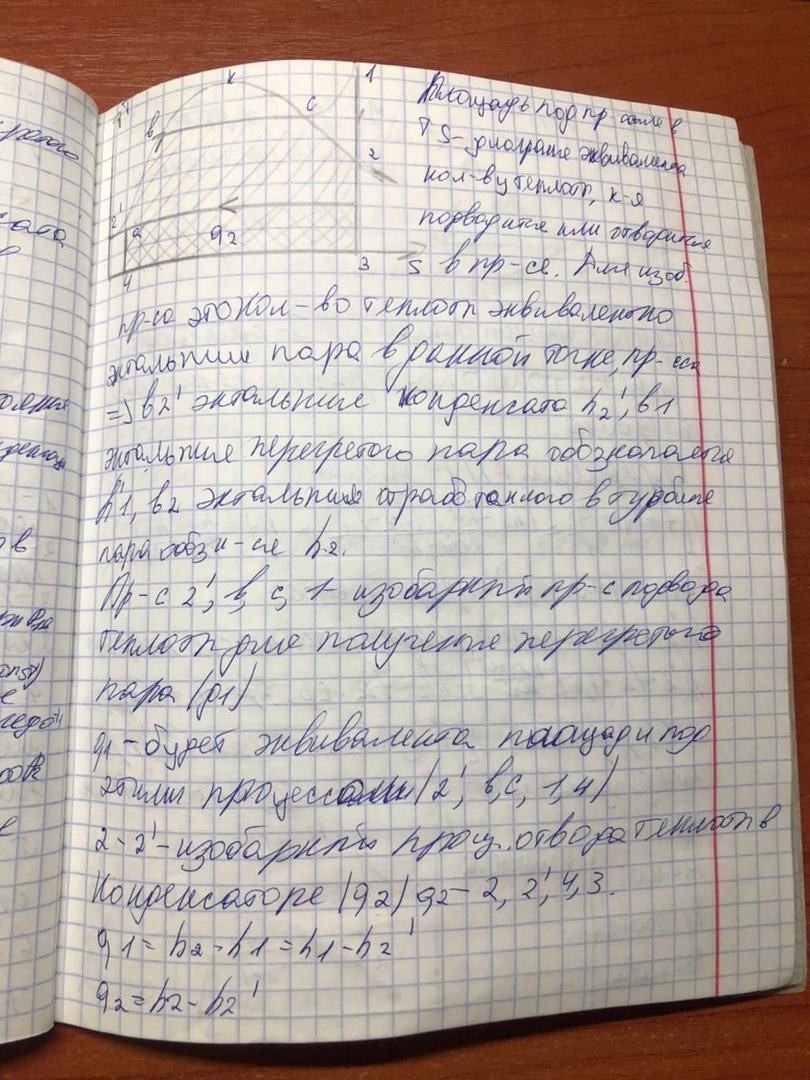 T
к
1
с
в
2
2'
а
q2
4
3
S
Площадь под пр-сами в
TS-диаграме эквивалента
кол-ву теплоты, к-я
подводится или отводится
в пр-се. Для изоб.
пр-са это кол-во теплоты эквивалентно
энтальпии пара в данной точке, пр-сса
=> в 2' энтальпие конденсата h2', в 1
энтальпие перегретого пара обозначается
h1, в 2 энтальпия отработанного в турбине
пара обозн-ся h2.
Пр-с 2', в, с, 1 - изобарный пр-с подвода
теплоты для получение перегретого
пара (q1)
q1 - будет эквивалента площади под
этими процессами (2', в, с, 1, 4)
2-2' - изобарный проц. отвода теплоты в
конденсаторе (q2) q2 - 2, 2', 4, 3.
q1 = h2 - h1 = h1 - h2'
q2 = h2 - h2'